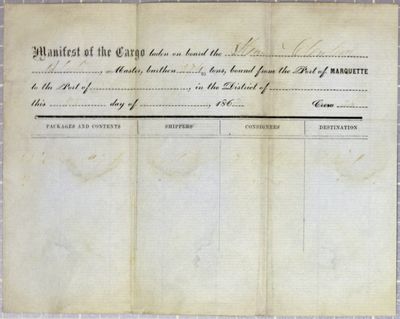 Manifest of the Cargo laden on board the
, Master, burthen tons, bound from the Port of MARQUETTE
to the Port of , in the District of
this day of , 186 Crew
PACKAGES AND CONTENTS SHIPPERS CONSIGNEES DESTINATION